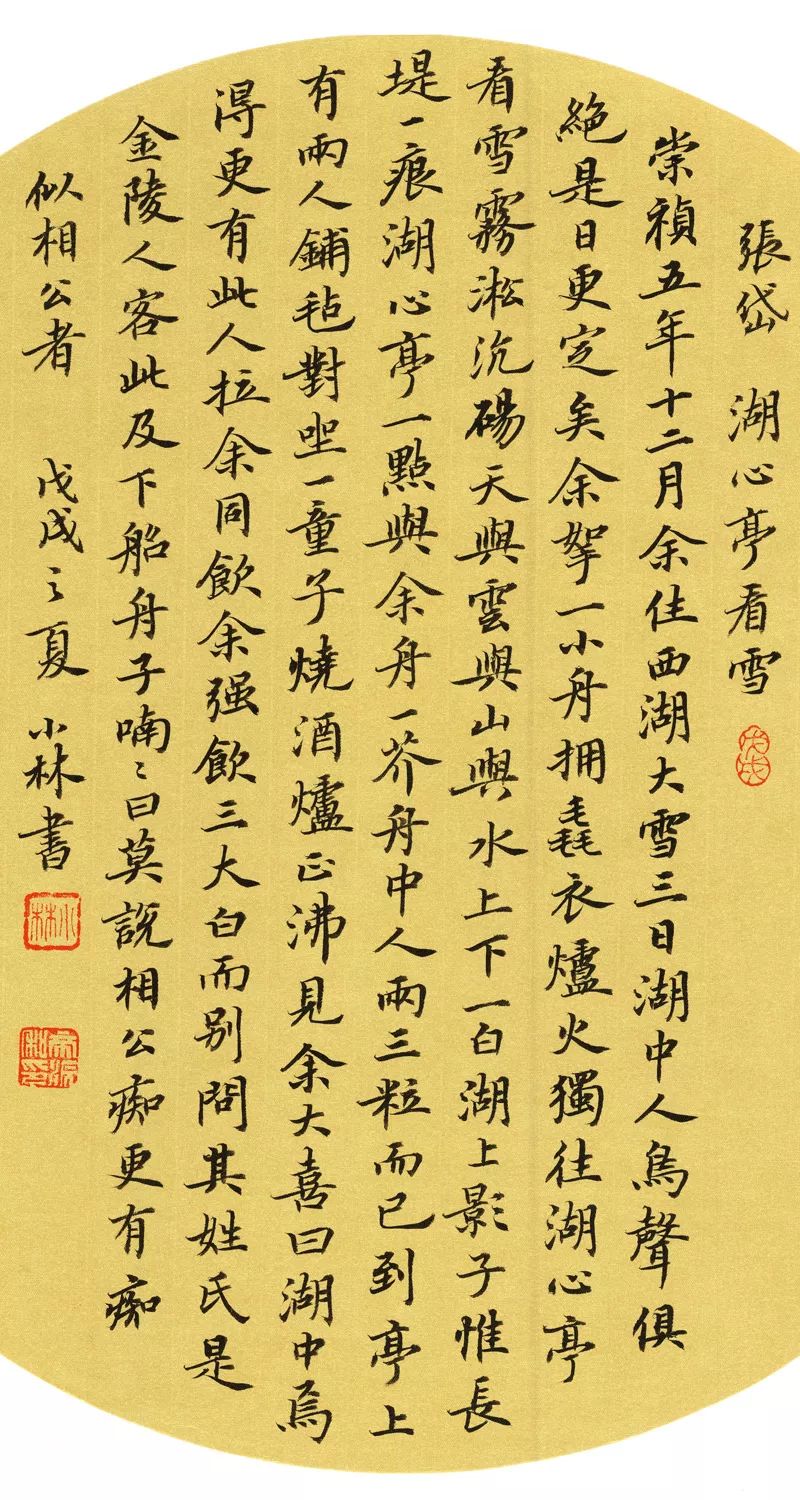 張岱 湖心亭看雪
戊戌
崇禎五年十二月余住西湖大雪三日湖中人鳥聲俱
絶是日更定矣余拏一小舟拥毳衣爐火獨往湖心亭
看雪霧淞沆碭天與雲與山與水上下一白湖上影子惟長
堤一痕湖心亭一點與余舟一芥舟中人兩三粒而已到亭上
有兩人鋪毡對坐一童子燒酒爐正沸見余大喜曰湖中焉
得更有此人拉余同飲余强飲三大白而别問其姓氏是
金陵人客此及下船舟子喃〻曰莫說相公痴更有痴
似相公者 戊戌之夏 小林書
小林